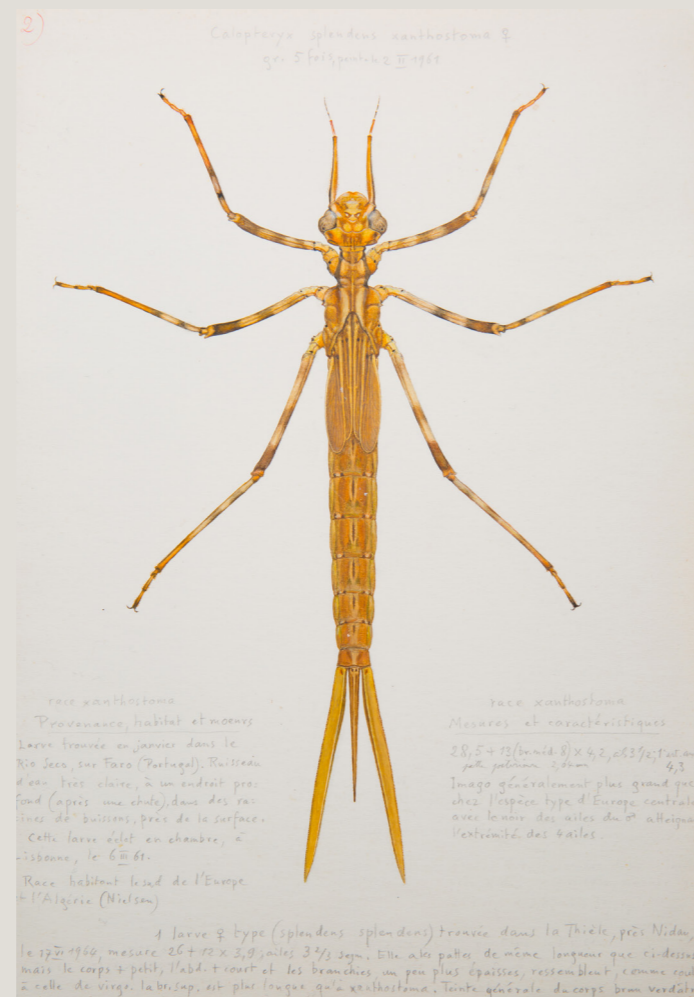 2)
Calopteryx splendens xanthostoma ♀
gr. 5 fois, 2 II 1961
race xanthostoma
Provenance, habitat et moeurs
Larve trouvée en janvier dans le
Rio Seco, sur Faro (Portugal). Ruisseau
d'eau très claire, à un endroit pro-
fond (après une chute), dans des ra-
cines de buissons, près de la surface.
Cette larve éclot en chambre, à
Lisbonne, le 6 61.
Race habitant le sud de l'Europe
+ l'Algérie (Nielsen)
race xanthostoma
Mesures et caractéristiques
28,5 + 13 (br. méd. 8) x 4,2,
4,3
Imago généralement plus grand que
chez l'espèce type d'Europe centrale
avec le noir des ailes du ♂ atteignant
l'extrémité des 4 ailes.
1 larve ♀ type (splendens splendens) trouvée dans la Thièle, près Nidau,
le 17 VI 1964, mesure 26 + 12 x 3,9; ailes 3 2/3 segm. Elle a les pattes de même longueur que ci-dessus
mais le corps + petit, l'abd. + court et les branchies, un peu plus épaisses, ressemblent, comme
à celle de virgo. la br. sup. est plus longue qu'à xanthostoma. Teinte générale du corps brun verdâtre